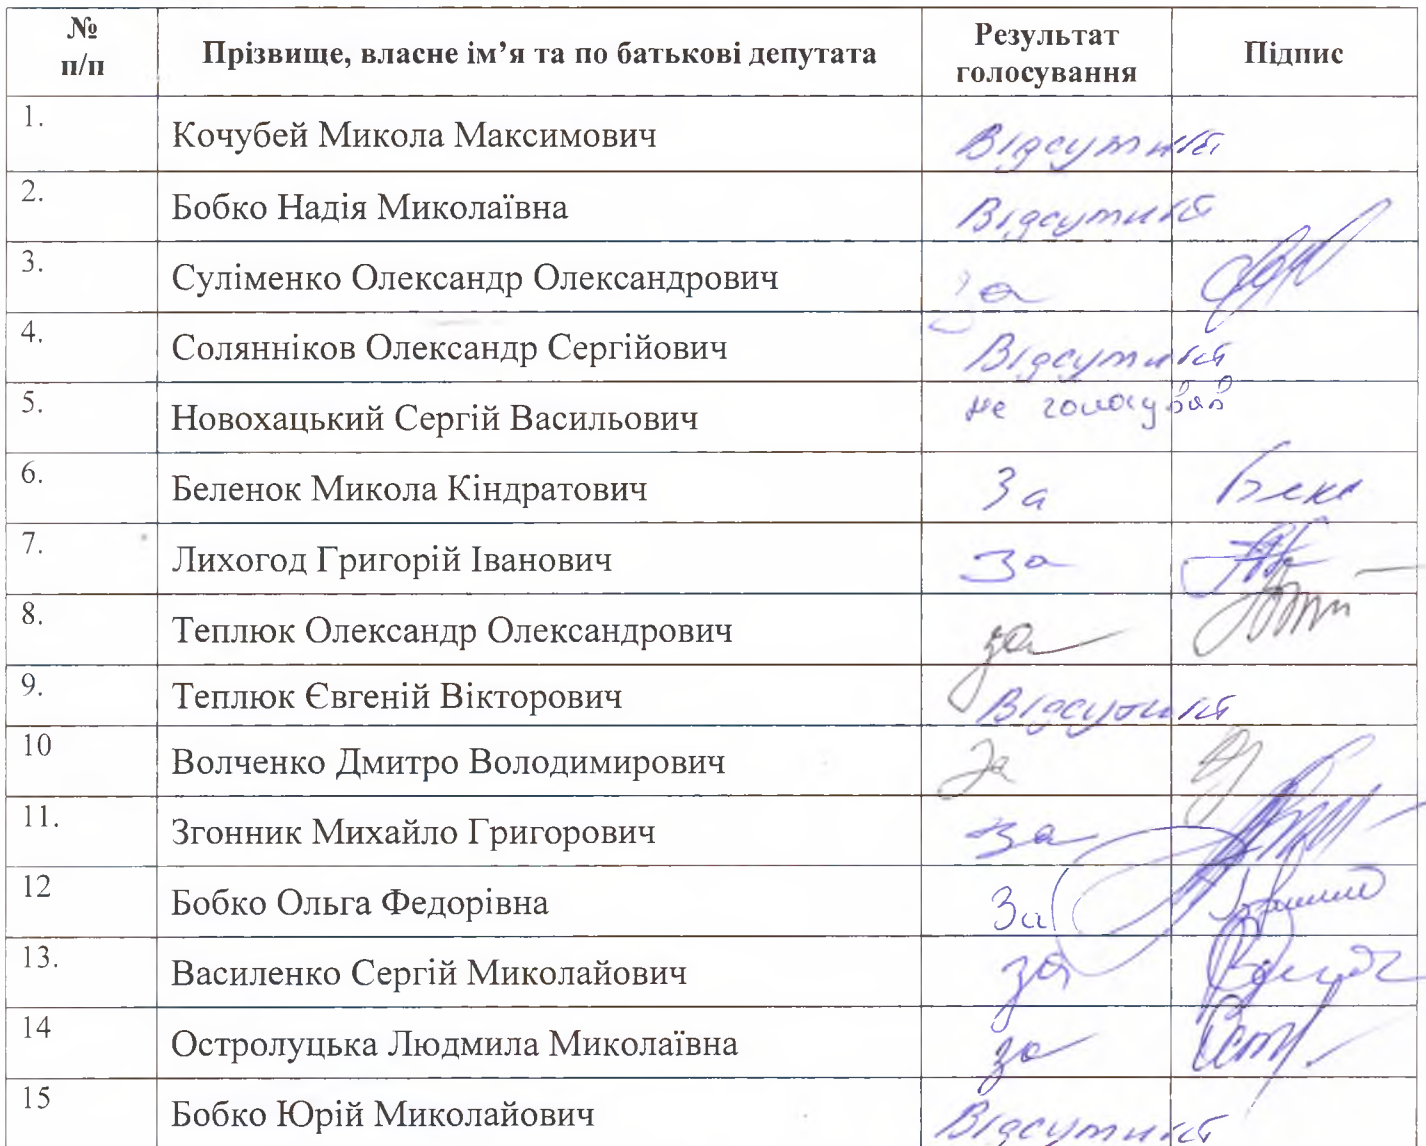 № п/п Прізвище, власне ім’я та по батькові депутата Результат голосування Підпис
1. Кочубей Микола Максимович Відсутній
2. Бобко Надія Миколаївна Відсутній
3. Суліменко Олександр Олександрович за
4. Солянніков Олександр Сергійович Відсутній
5. Новохацький Сергій Васильович не голосував
6. Беленок Микола Кіндратович За
7. Лихогод Григорій Іванович за
8. Теплюк Олександр Олександрович за
9. Теплюк Євгеній Вікторович Відсутній
10 Волченко Дмитро Володимирович За
11. Згонник Михайло Григорович за
12 Бобко Ольга Федорівна За
13. Василенко Сергій Миколайович за
14 Остролуцька Людмила Миколаївна за
15 Бобко Юрій Миколайович Відсутній